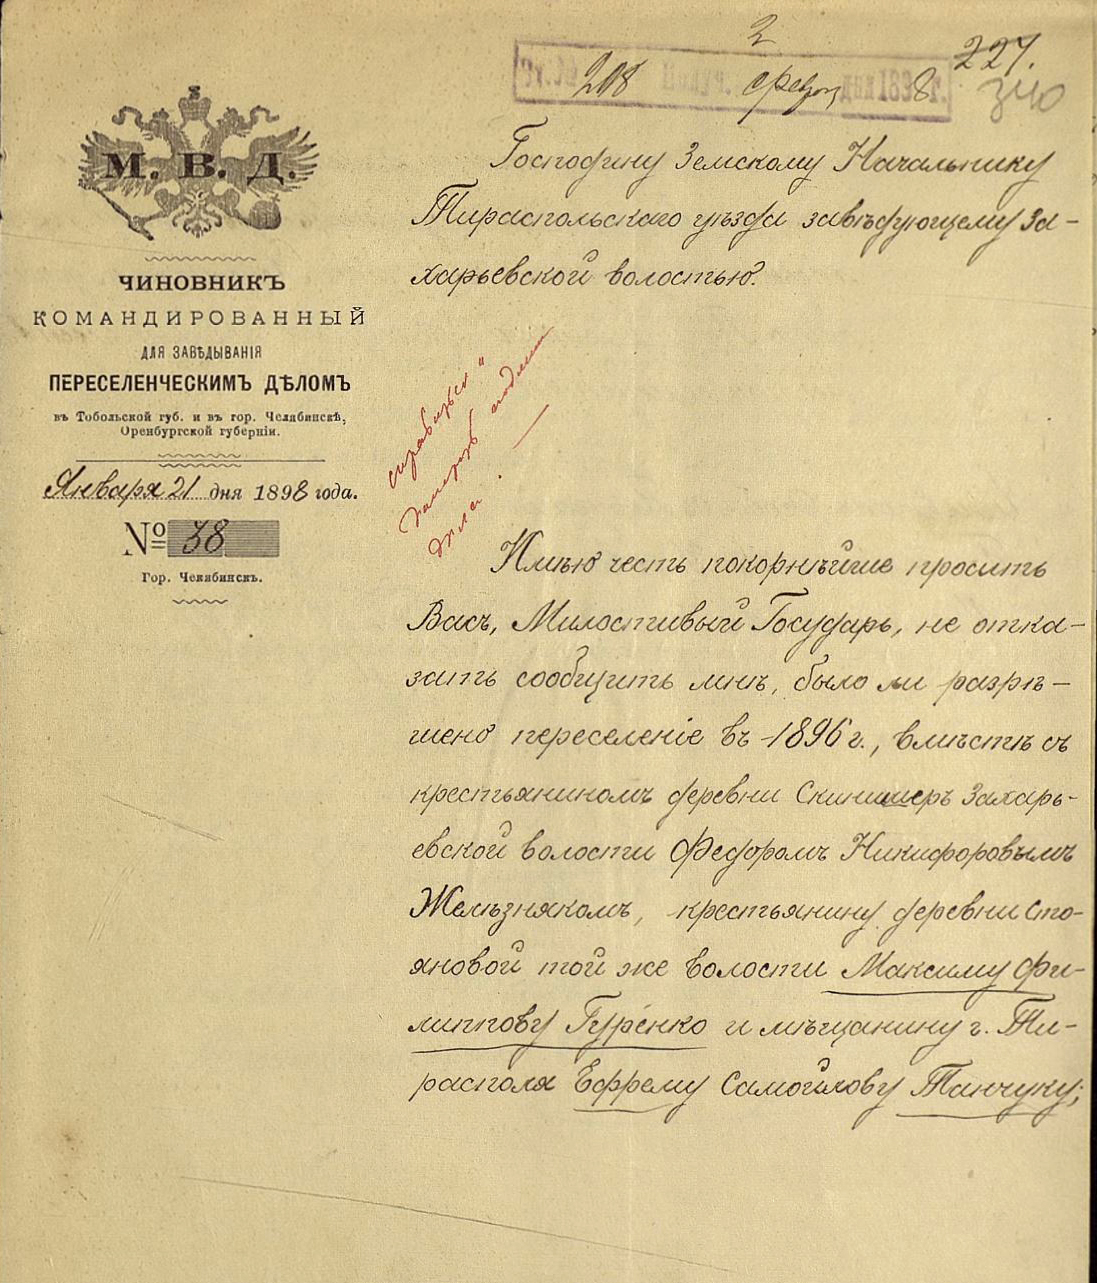 2
227.
208 Февр. 8
340
М. В. Д.
ЧИНОВНИКЪ
КОМАНДИРОВАННЫЙ
ДЛЯ ЗАВѢДЫВАНІЯ
ПЕРЕСЕЛЕНЧЕСКИМЪ ДѢЛОМЪ
въ Тобольской губ. и въ гор. Челябинскѣ,
Оренбургской губерніи.
Января 21 дня 1898 года.
№ 38
Гор. Челябинскъ.
Господину Земскому Начальнику
Тираспольскаго уѣзда завѣдующему За-
харьевской волостью.
Имѣю честь покорнѣйше просить
Васъ, Милостивый Государь, не отка-
зать сообщить мнѣ, было ли разрѣ-
шено переселеніе въ 1896 г., вмѣстѣ съ
крестьяниномъ деревни Скинишеръ Захарь-
евской волости Федоромъ Никифоровымъ
Желѣзнякомъ, крестьянину деревни Сто-
яновой той же волости Максиму Фи-
липпову Гуренко и мѣщанину г. Ти-
располя Ефрему Самойлову Танчуку;